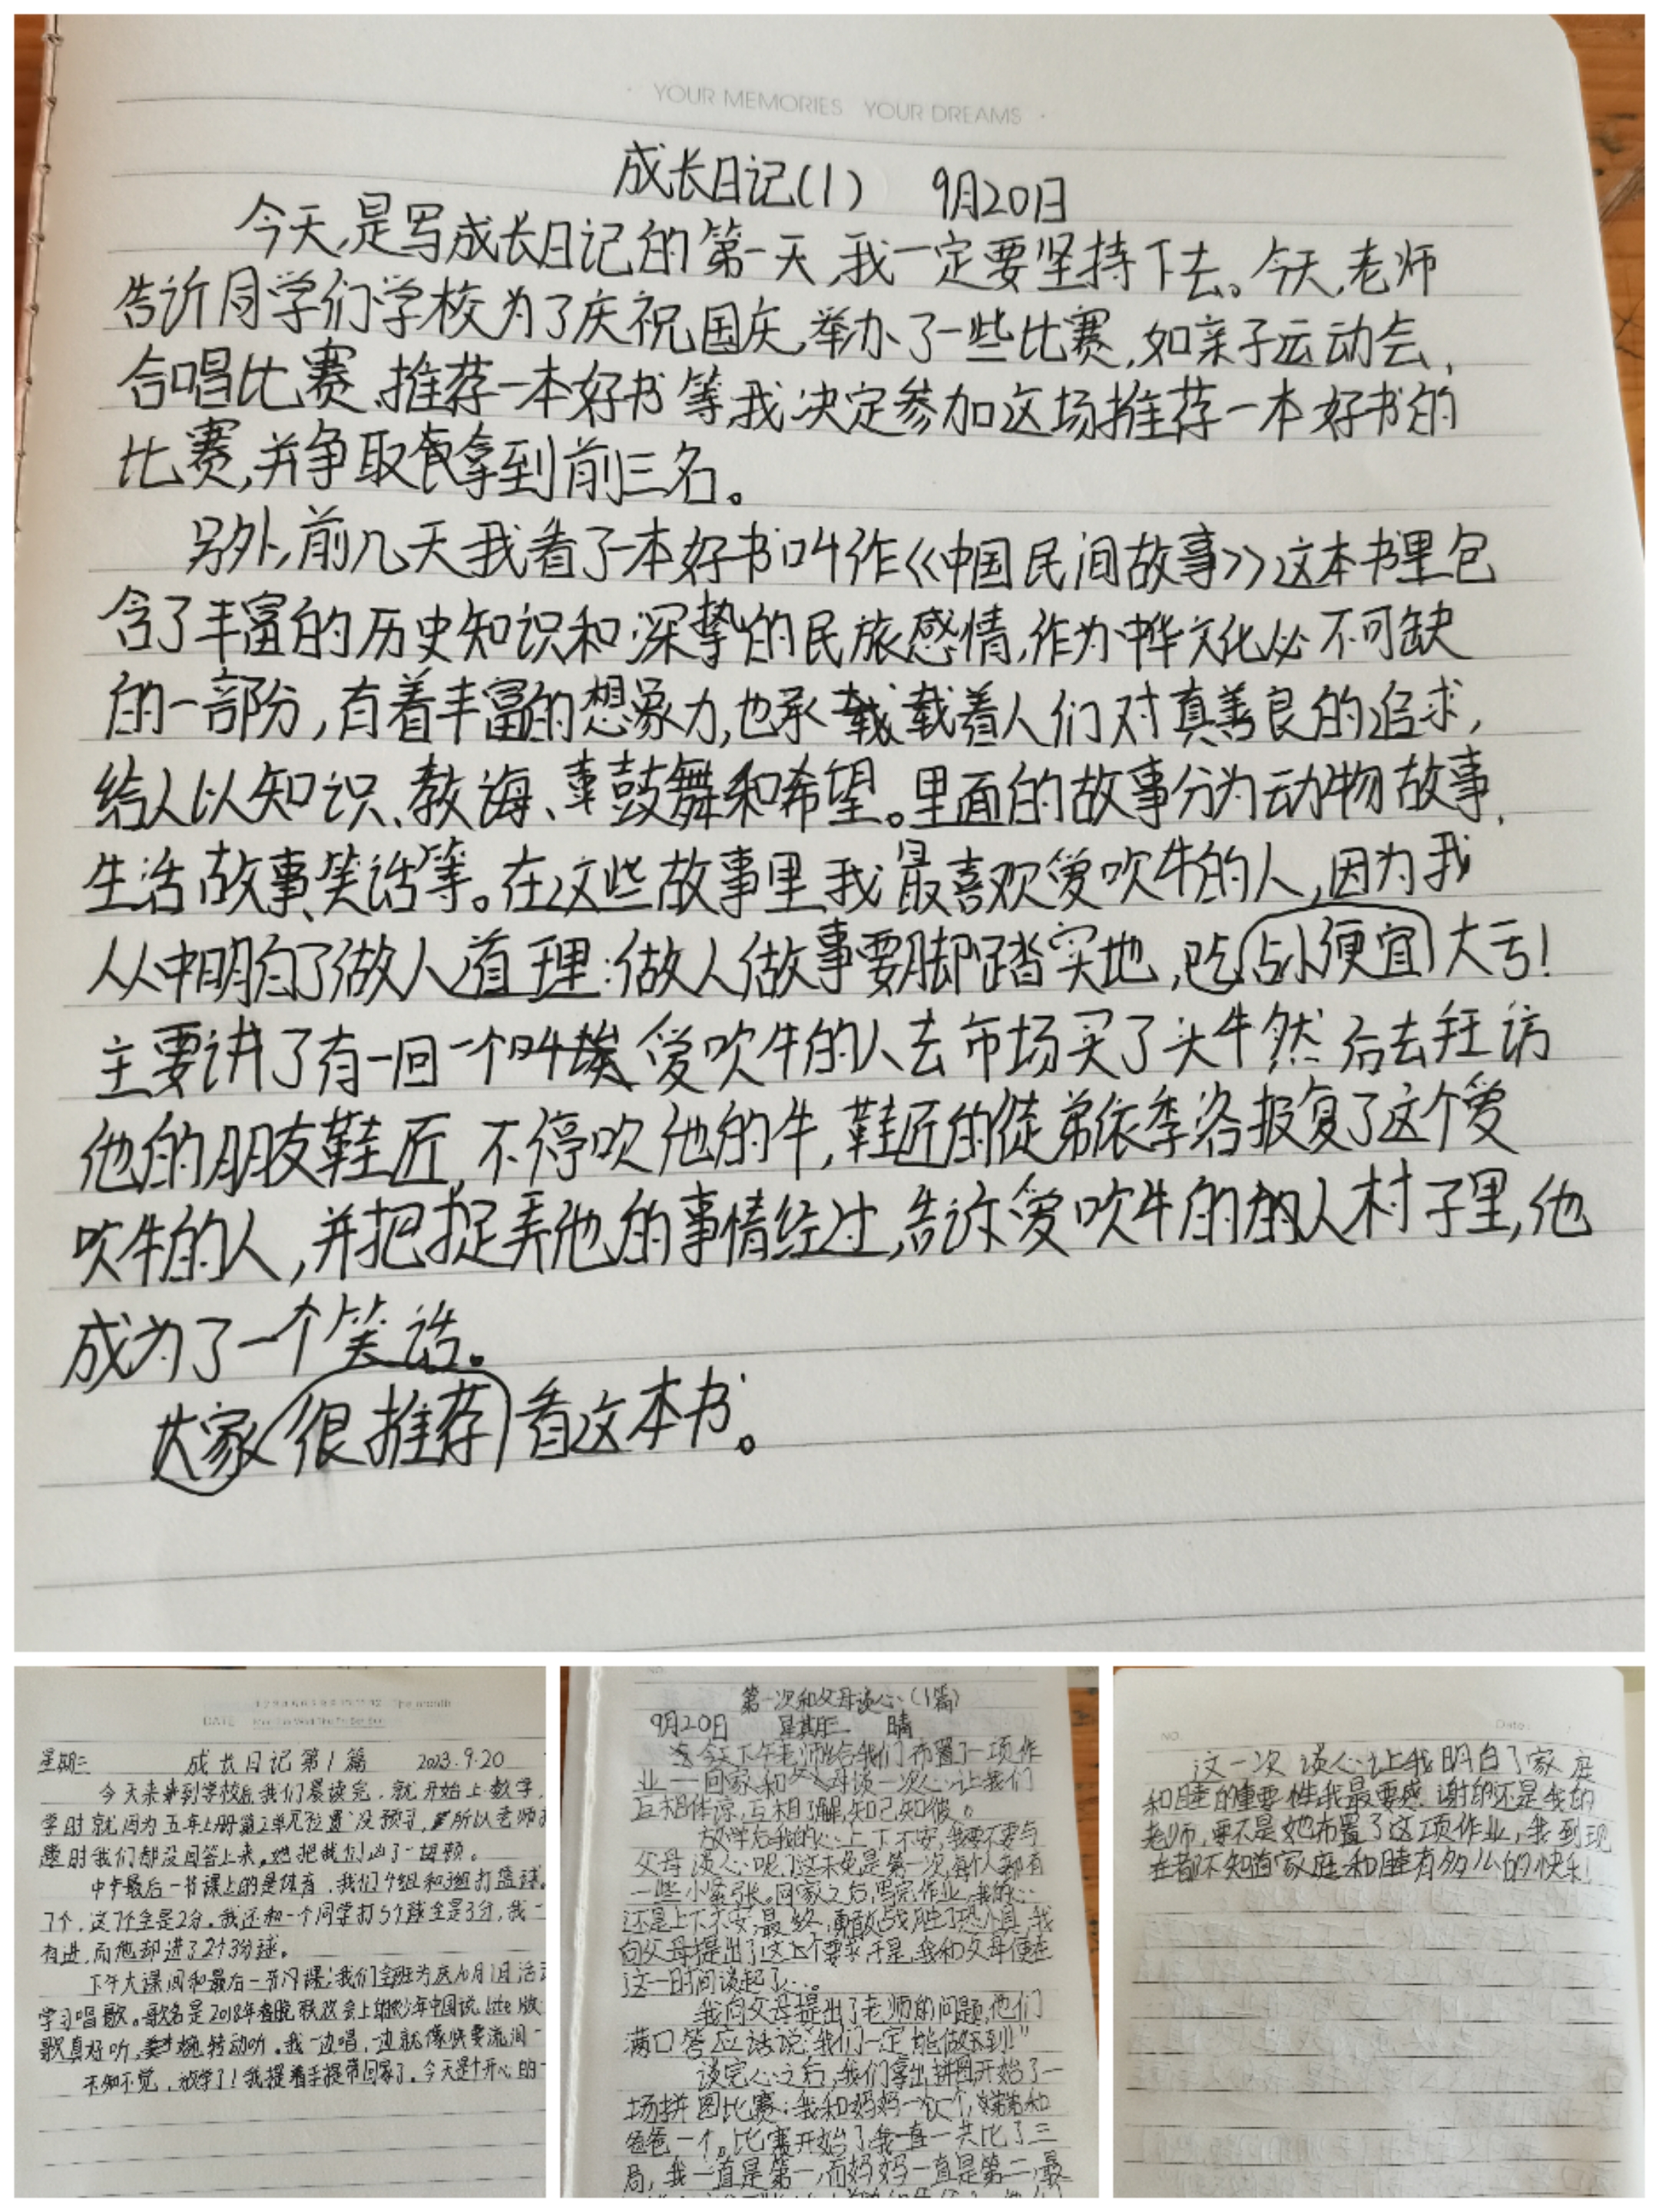 YOUR MEMORIES YOUR DREAMS
成长日记(1) 9月20日
今天,是写成长日记的第一天,我一定要坚持下去。今天,老师
告诉同学们学校为了庆祝国庆,举办了一些比赛,如亲子运动会、
合唱比赛、推荐一本好书等,我决定参加这场推荐一本好书的
比赛,并争取拿到前三名。
另外,前几天我看了一本好书叫作《中国民间故事》这本书里包
含了丰富的历史知识和深挚的民族感情,作为中华文化必不可缺
的一部分,有着丰富的想象力,也承载着人们对真善良的追求,
给人以知识、教诲、鼓舞和希望。里面的故事分为动物故事、
生活故事、笑话等。在这些故事里,我最喜欢爱吹牛的人,因为我
从中明白了做人道理:做人做故事要脚踏实地,吃占小便宜大亏!
主要讲了有一回一个叫爱吹牛的人去市场买了头牛然后去拜访
他的朋友鞋匠,不停吹他的牛,鞋匠的徒弟依季洛报复了这个爱
吹牛的人,并把捉弄他的事情经过,告诉爱吹牛的人村子里,他
成为了一个笑话。
大家很推荐看这本书。
DATE
星期三 成长日记第1篇 2023.9.20
今天来到学校后我们晨读完,就开始上数学,
学时就因为五年上册第2单元位置没预习,所以老师
题时我们都没回答上来,她把我们凶了一胡顿。
中午最后一节课上的是体育,我们4组和3组打篮球。
了个,这7个全是2分。我还和一个同学打5个球全是3分,我一
有进,而他却进了2个3分球。
下午大课间和最后一节课:我们全班为庆10月1日活
学习唱歌。歌名是2018年春晚联欢会上的少年中国说lite版
歌真好听,婉转动听。我一边唱,一边就像快要流泪一
不知不觉,放学了!我提着手提带回家了。今天是个开心的一
第一次和父母谈心(1篇)
9月20日 星期三 晴
今天下午老师给我们布置了一项作
业——回家和父母谈一次心让我们
互相体谅,互相了解,知己知彼。
放学后我的心上下不安,我要不要与
父母谈心呢?这未免是第一次,每个人都有
一些小紧张。回家之后,写完作业,我的心
还是上下不安,最终,勇敢战胜了恐惧,我
向父母提出了这个要求于是,我和父母便在
这一时间谈起了心。
我向父母提出了老师的问题,他们
满口答应话说:“我们一定能做到!”
谈完心之后,我们拿出拼图开始了一
场拼图比赛:我和妈妈一人一个,弟弟和
爸爸一个。比赛开始了,我一直一共比了三
局,我一直是第一,而妈妈一直是第二,最
NO. Date:
这一次谈心让我明白了家庭
和睦的重要性,我最要感谢的还是我的
老师,要不是她布置了这项作业,我到现
在都不知道家庭和睦有多么的快乐!